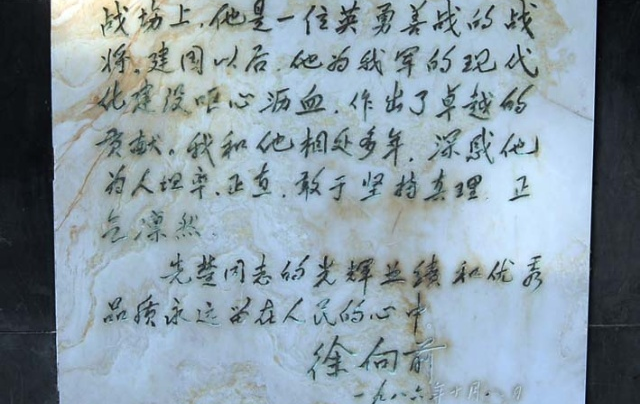 战场上,他是一位英勇善战的战
将,建国以后,他为我军的现代
化建设呕心沥血,作出了卓越的
贡献。我和他相处多年,深感他
为人坦率、正直、敢于坚持真理,正
气凛然。
先楚同志的光辉业绩和优秀
品质永远留在人民的心中
徐向前
一九八六年十月 日